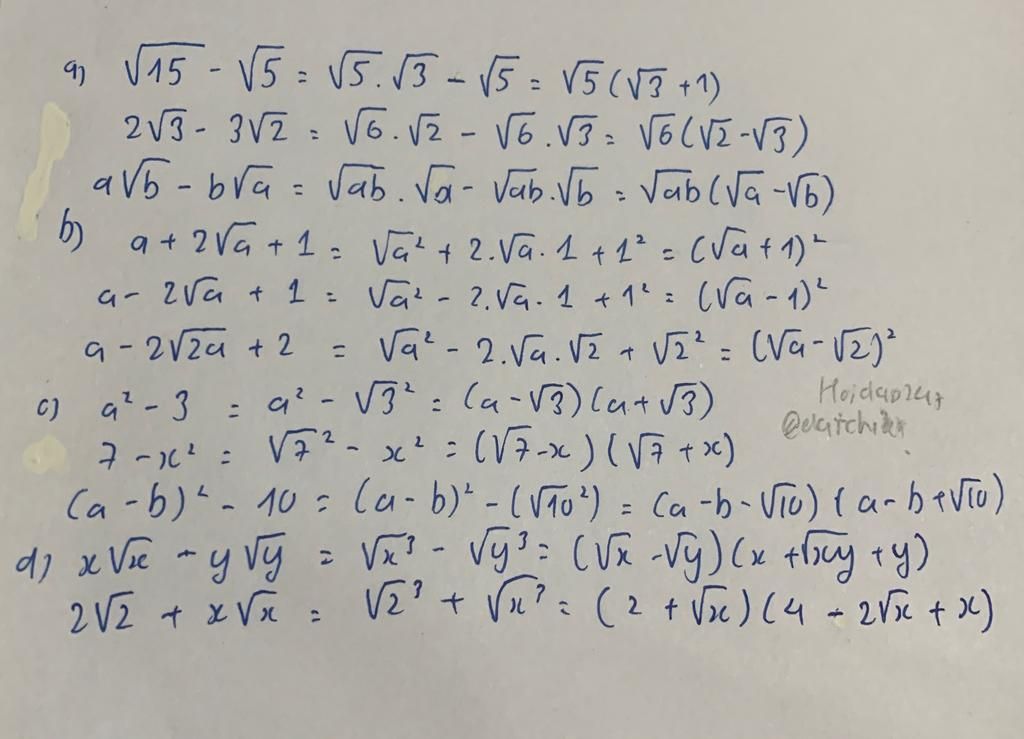 a) √15 - √5 = √5.√3 - √5 = √5(√3 +1)
2√3 - 3√2 = √6.√2 - √6.√3 = √6(√2-√3)
a√b - b√a = √ab.√a - √ab.√b = √ab(√a-√b)
b) a + 2√a + 1 = √a² + 2.√a.1 + 1² = (√a+1)²
a - 2√a + 1 = √a² - 2.√a.1 + 1² = (√a-1)²
a - 2√2a + 2 = √a² - 2.√a.√2 + √2² = (√a-√2)²
c) a² - 3 = a² - √3² = (a-√3)(a+√3)
7-x² = √7² - x² = (√7-x)(√7+x)
(a-b)² - 10 = (a-b)² - (√10²) = (a-b-√10)(a-b+√10)
d) x√x - y√y = √x³ - √y³ = (√x-√y)(x+√xy+y)
2√2 + x√x = √2³ + √x³ = (2+√x)(4-2√x+x)